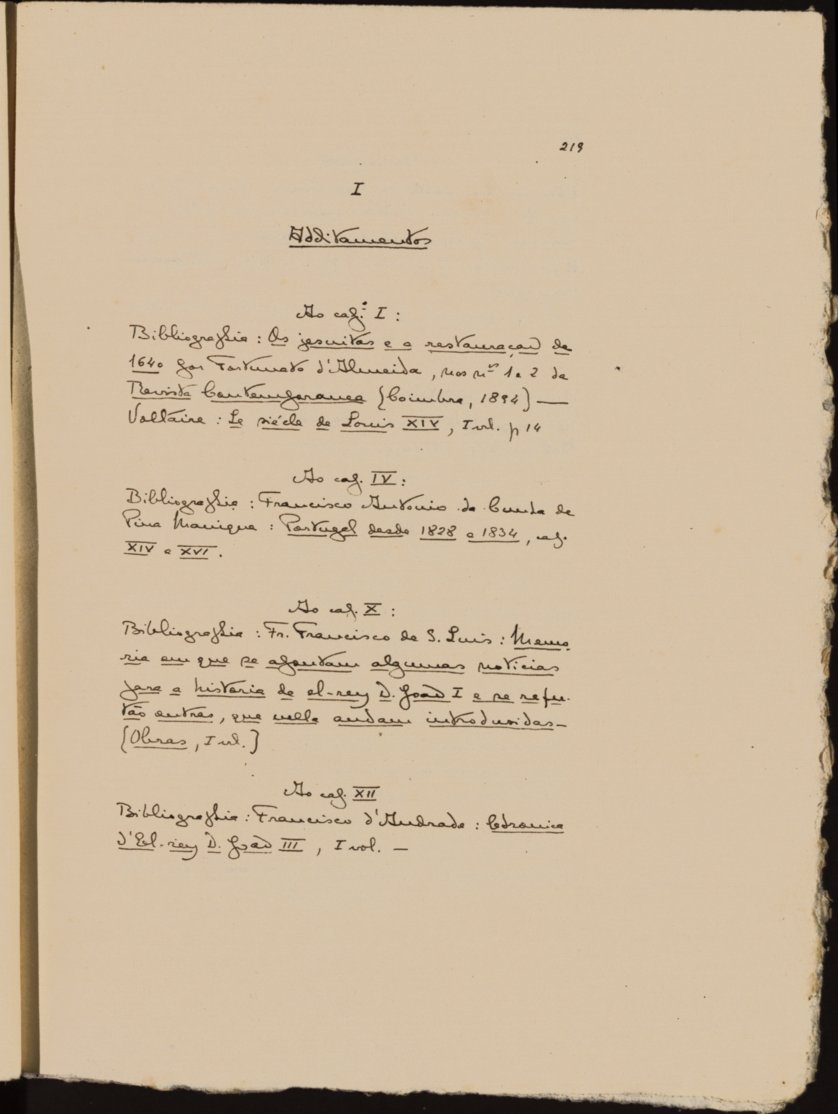 219
I
Additamentos
Ao cap.º I :
Bibliographia : Os jesuitas e a restauração de
1640 por Fortunato d'Almeida, nos nos 1 e 2 da
Revista Contemporanea (Coimbra, 1894) —
Voltaire : Le siécle de Louis XIV, I vol. p 14
Ao cap. IV :
Bibliographia : Francisco Antonio da Cunha de
Pina Manique : Portugal desde 1828 a 1834, cap.
XIV e XVI.
Ao cap. X :
Bibliographia : Fr. Francisco de S. Luis : Memo-
ria em que se apontam algumas noticias
para a historia de el-rey D. João I e se refu-
tão outras, que nella andam introdusidas —
(Obras, I vol.)
Ao cap. XII
Bibliographia : Francisco d'Andrade : Chronica
d'El-rey D. João III, I vol. —